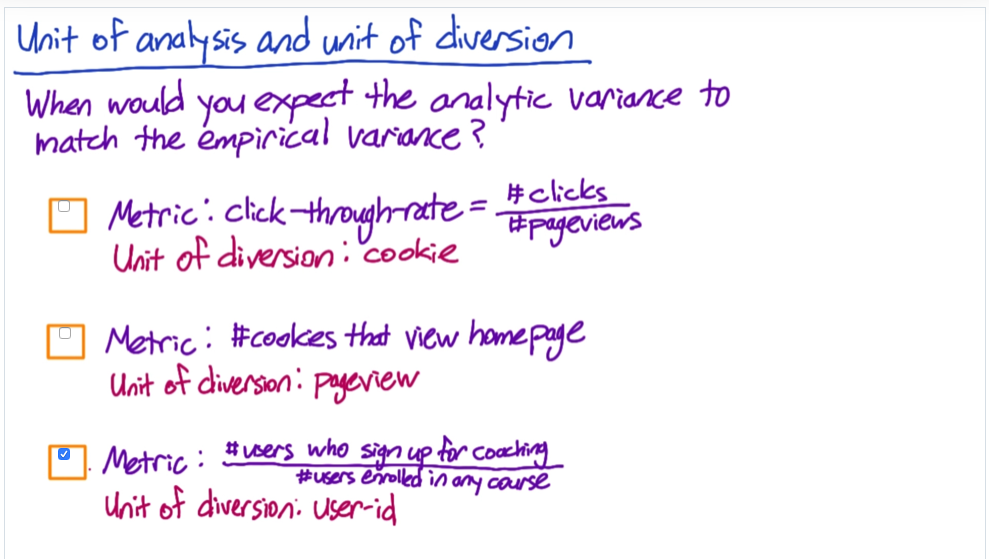 Unit of analysis and unit of diversion
When would you expect the analytic variance to
match the empirical variance?
Metric: click-through-rate = #clicks
#pageviews
Unit of diversion: cookie
Metric: #cookies that view homepage
Unit of diversion: pageview
Metric: #users who sign up for coaching
#users enrolled in any course
Unit of diversion: user-id